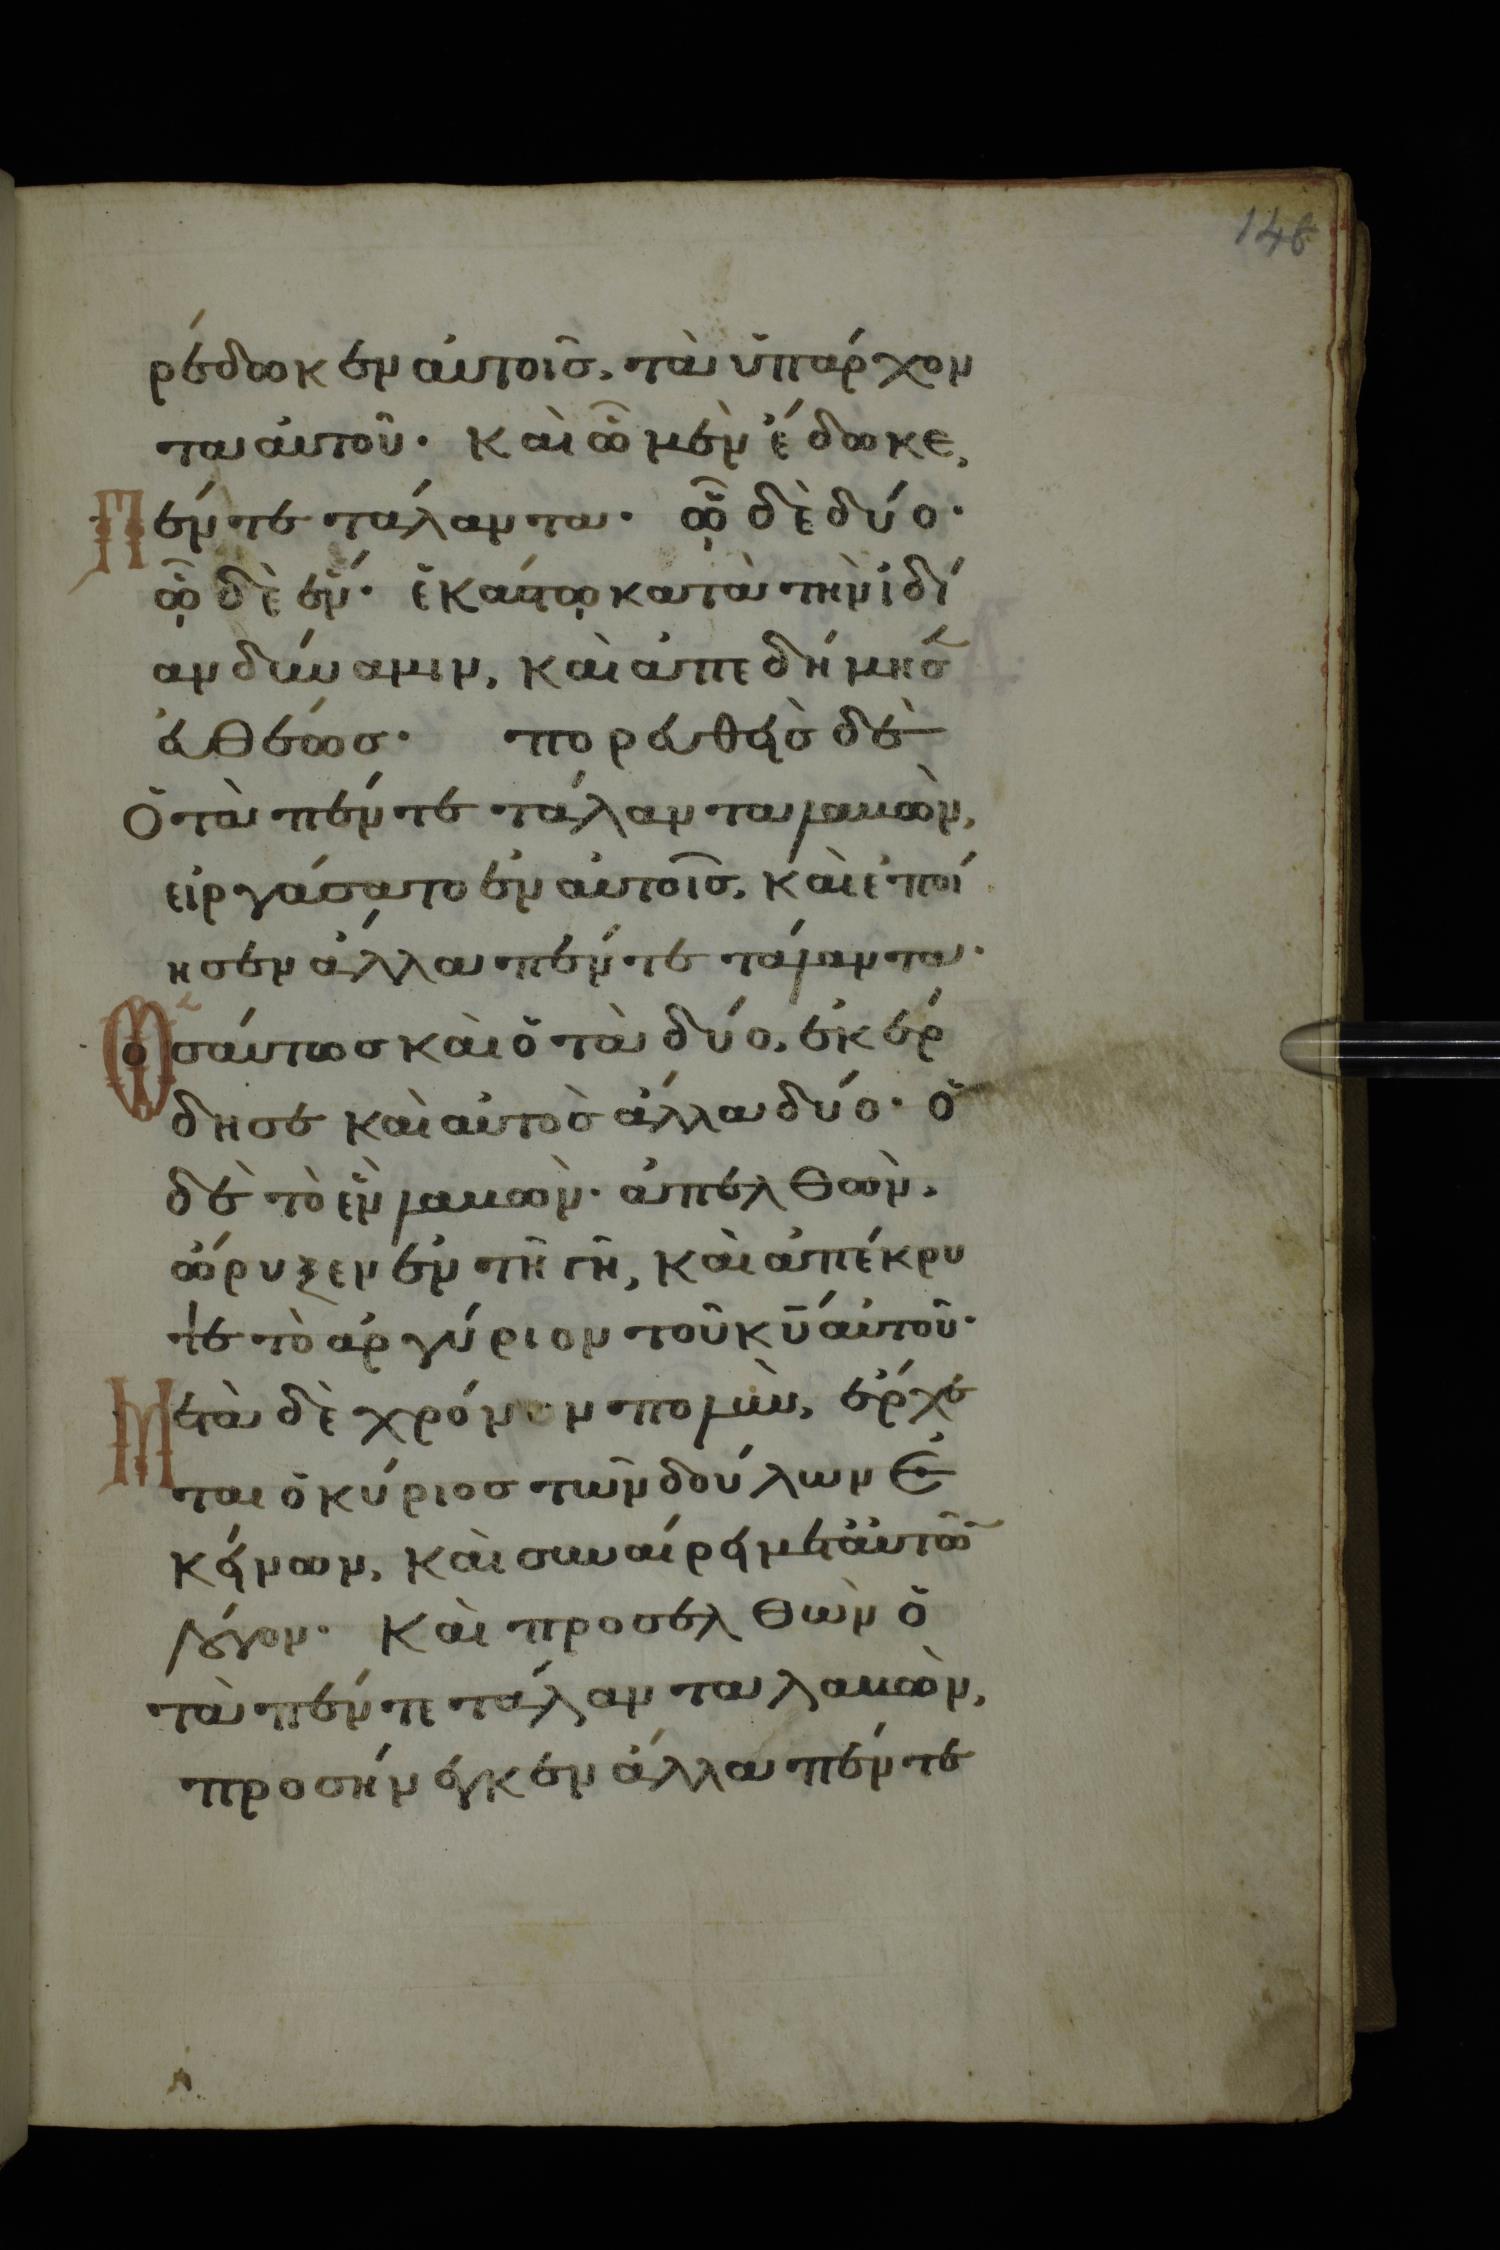 148
ρέδωκεν αὐτοῖς, τὰ ὑπάρχον
τα αὐτοῦ· Καὶ ᾧ μὲν ἔδωκε,
Πέντε τάλαντα· ᾧ δὲ δύο·
ᾧ δὲ ἕν· ἑκάστῳ κατὰ τὴν ἰδί
αν δύναμιν, καὶ ἀπεδήμησ
εὐθέως· πορευθεὶς δὲ
Ὁ τὰ πέντε τάλαντα λαβὼν,
εἰργάσατο ἐν αὐτοῖς, καὶ ἐποί
ησεν ἄλλα πέντε τάλαντα·
Ὡσαύτως καὶ ὁ τὰ δύο, ἐκέρ
δησε καὶ αὐτὸς ἄλλα δύο· ὁ
δὲ τὸ ἓν λαβὼν· ἀπελθὼν,
ὤρυξεν ἐν τῇ γῇ, καὶ ἀπέκρυ
ψε τὸ ἀργύριον τοῦ κ̅υ̅ αὐτοῦ·
Μετὰ δὲ χρόνον πολὺν, ἔρχε
ται ὁ κύριος τῶν δούλων ἐ
κείνων, καὶ συναίρει μετ' αὐτῶ
λόγον· Καὶ προσελθὼν ὁ
τὰ πέντε τάλαντα λαβὼν,
προσήνεγκεν ἄλλα πέντε